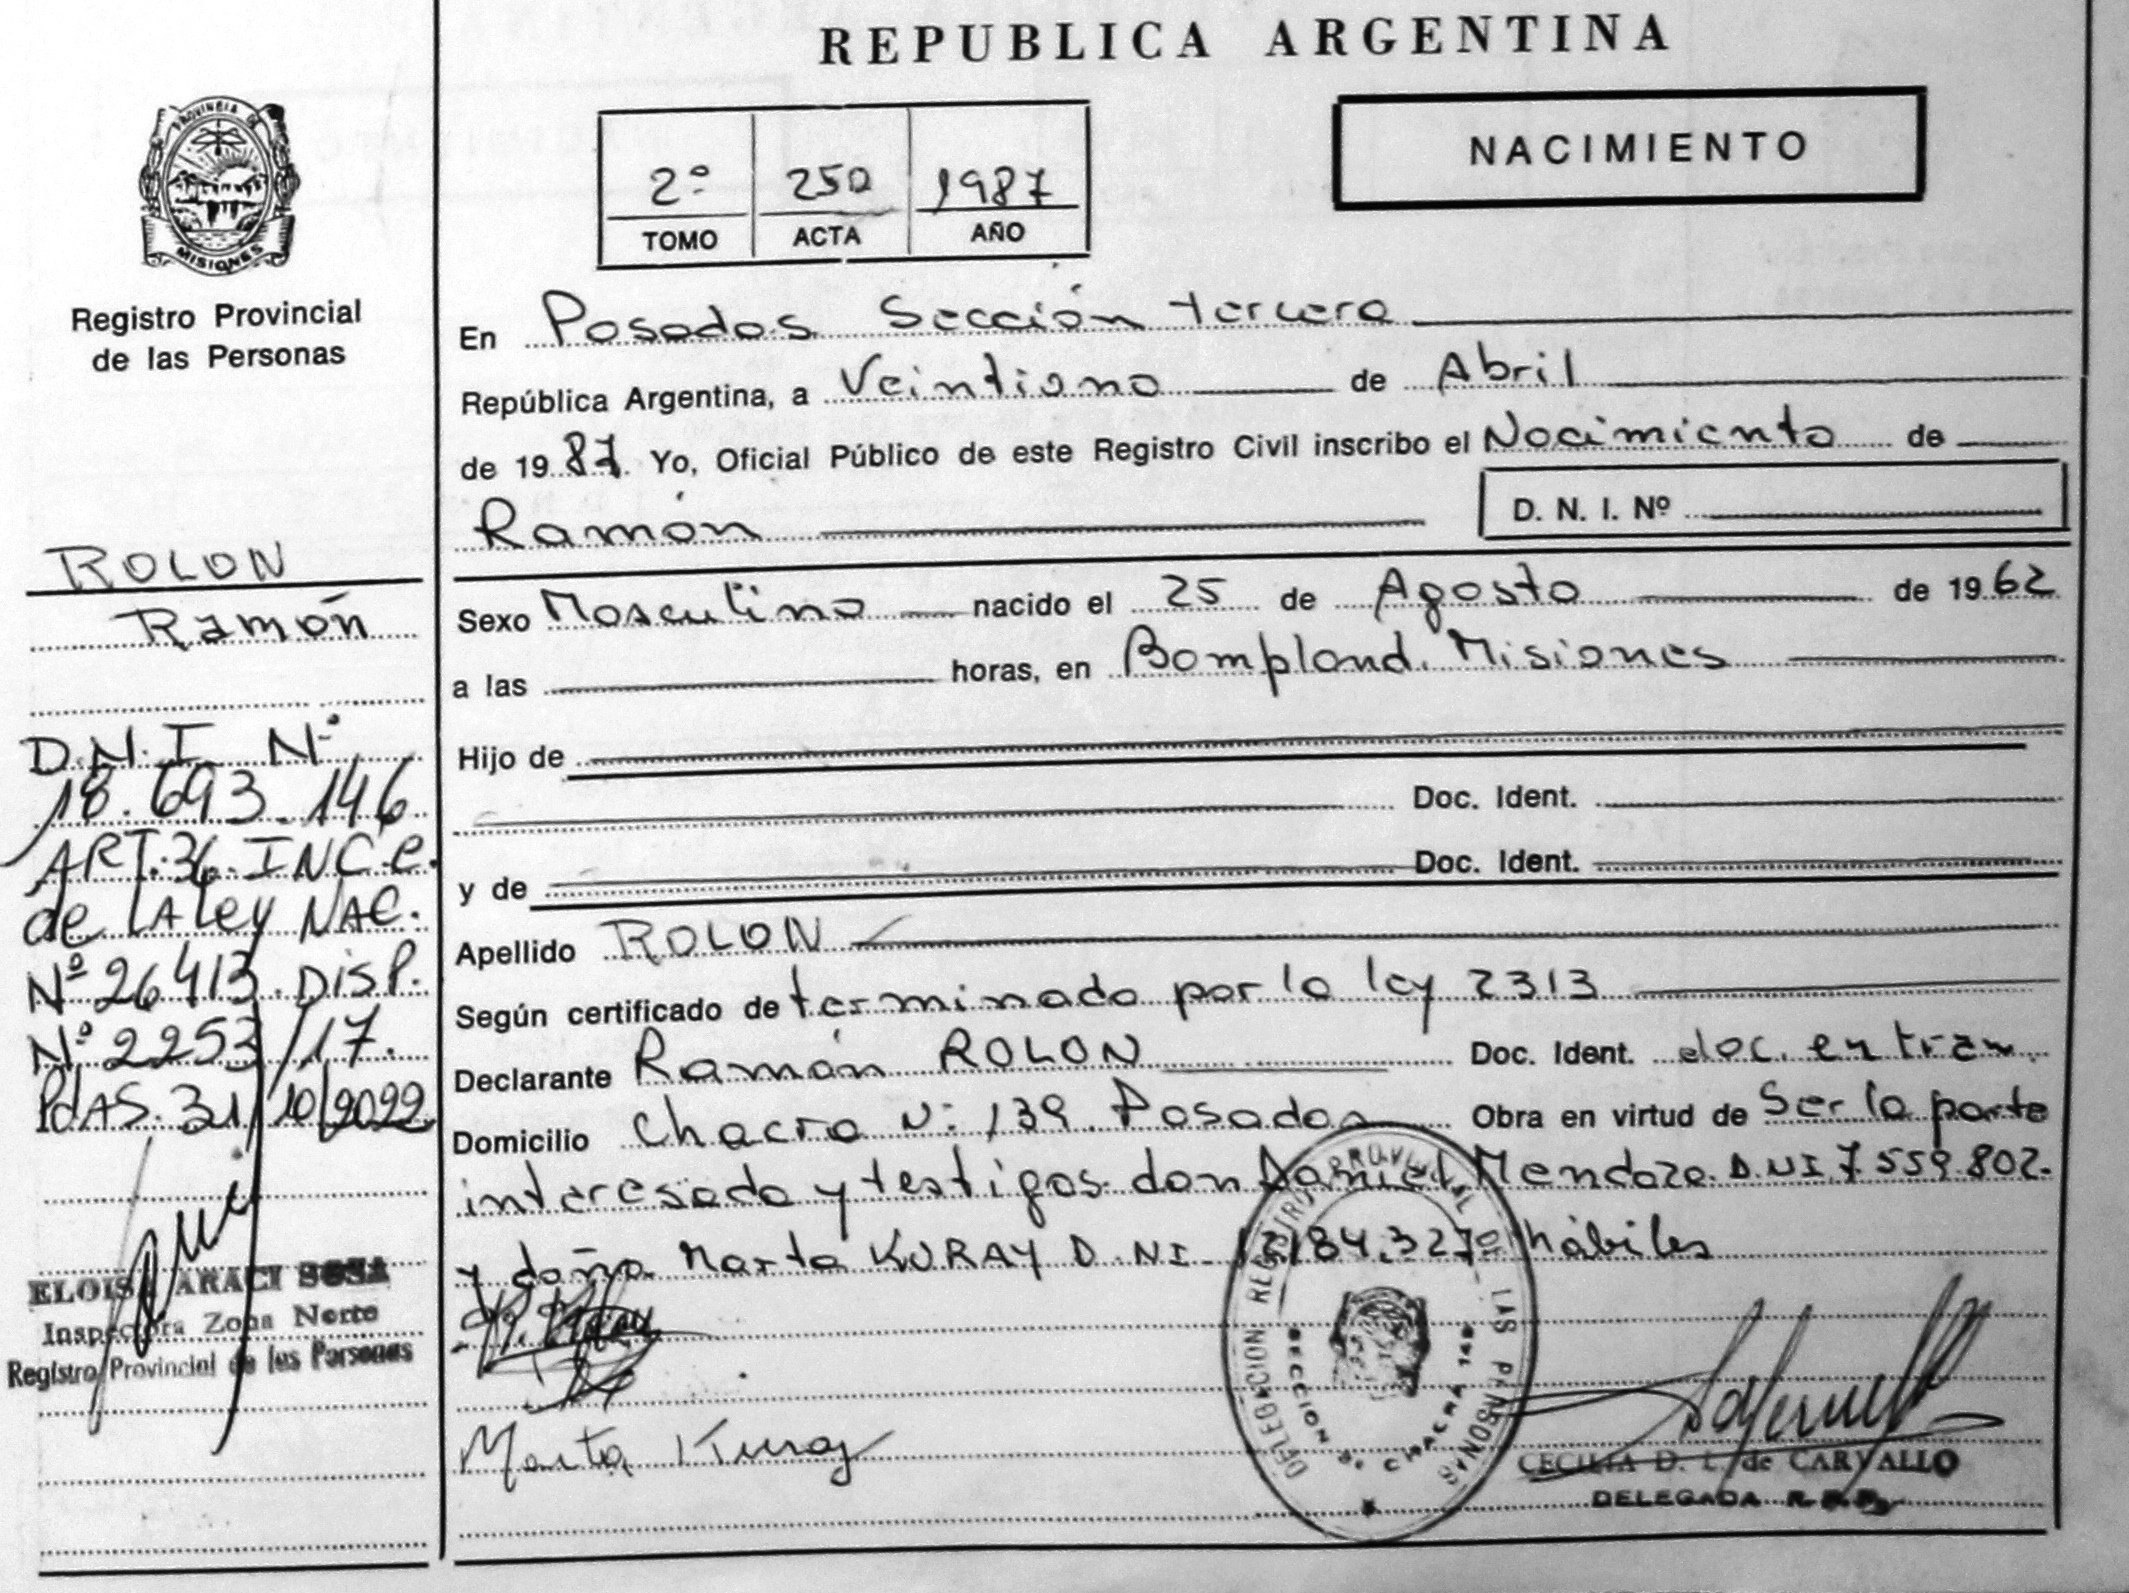 REPUBLICA ARGENTINA
PROVINCIA DE
MISIONES
2º 250 1987
TOMO ACTA AÑO
NACIMIENTO
Registro Provincial
de las Personas
ROLON
Ramón
D.N.I. Nº
18.693.146
ART.36.INC.e.
de LA Ley NAC.
Nº 26413.DISP.
Nº 2253/17.
PdAS.31/10/2022
ELOISA ARACI SOSA
Inspectora Zona Norte
Registro Provincial de las Personas
En Posadas Sección tercera
República Argentina, a Veintiuno de Abril
de 1987. Yo, Oficial Público de este Registro Civil inscribo el Nacimiento de
Ramón D. N. I. Nº
Sexo Masculino nacido el 25 de Agosto de 1962
a las horas, en Bompland. Misiones
Hijo de
Doc. Ident.
y de Doc. Ident.
Apellido ROLON
Según certificado de terminado por la ley 2313
Declarante Ramón ROLON Doc. Ident. doc. en tram.
Domicilio Chacra Nº 139. Posadas Obra en virtud de Ser la parte
interesada y testigos don Daniel Mendoza. D.NI.7.559.802.
y doña Marta KURAY D.NI. 184.327 hábiles
Marta Kuray
DELEGACION REGISTRO PROVINCIAL DE LAS PERSONAS
SECCION 3ª CHACRA 148
CECILIA D. L. de CARVALLO
DELEGADA R.P.P.